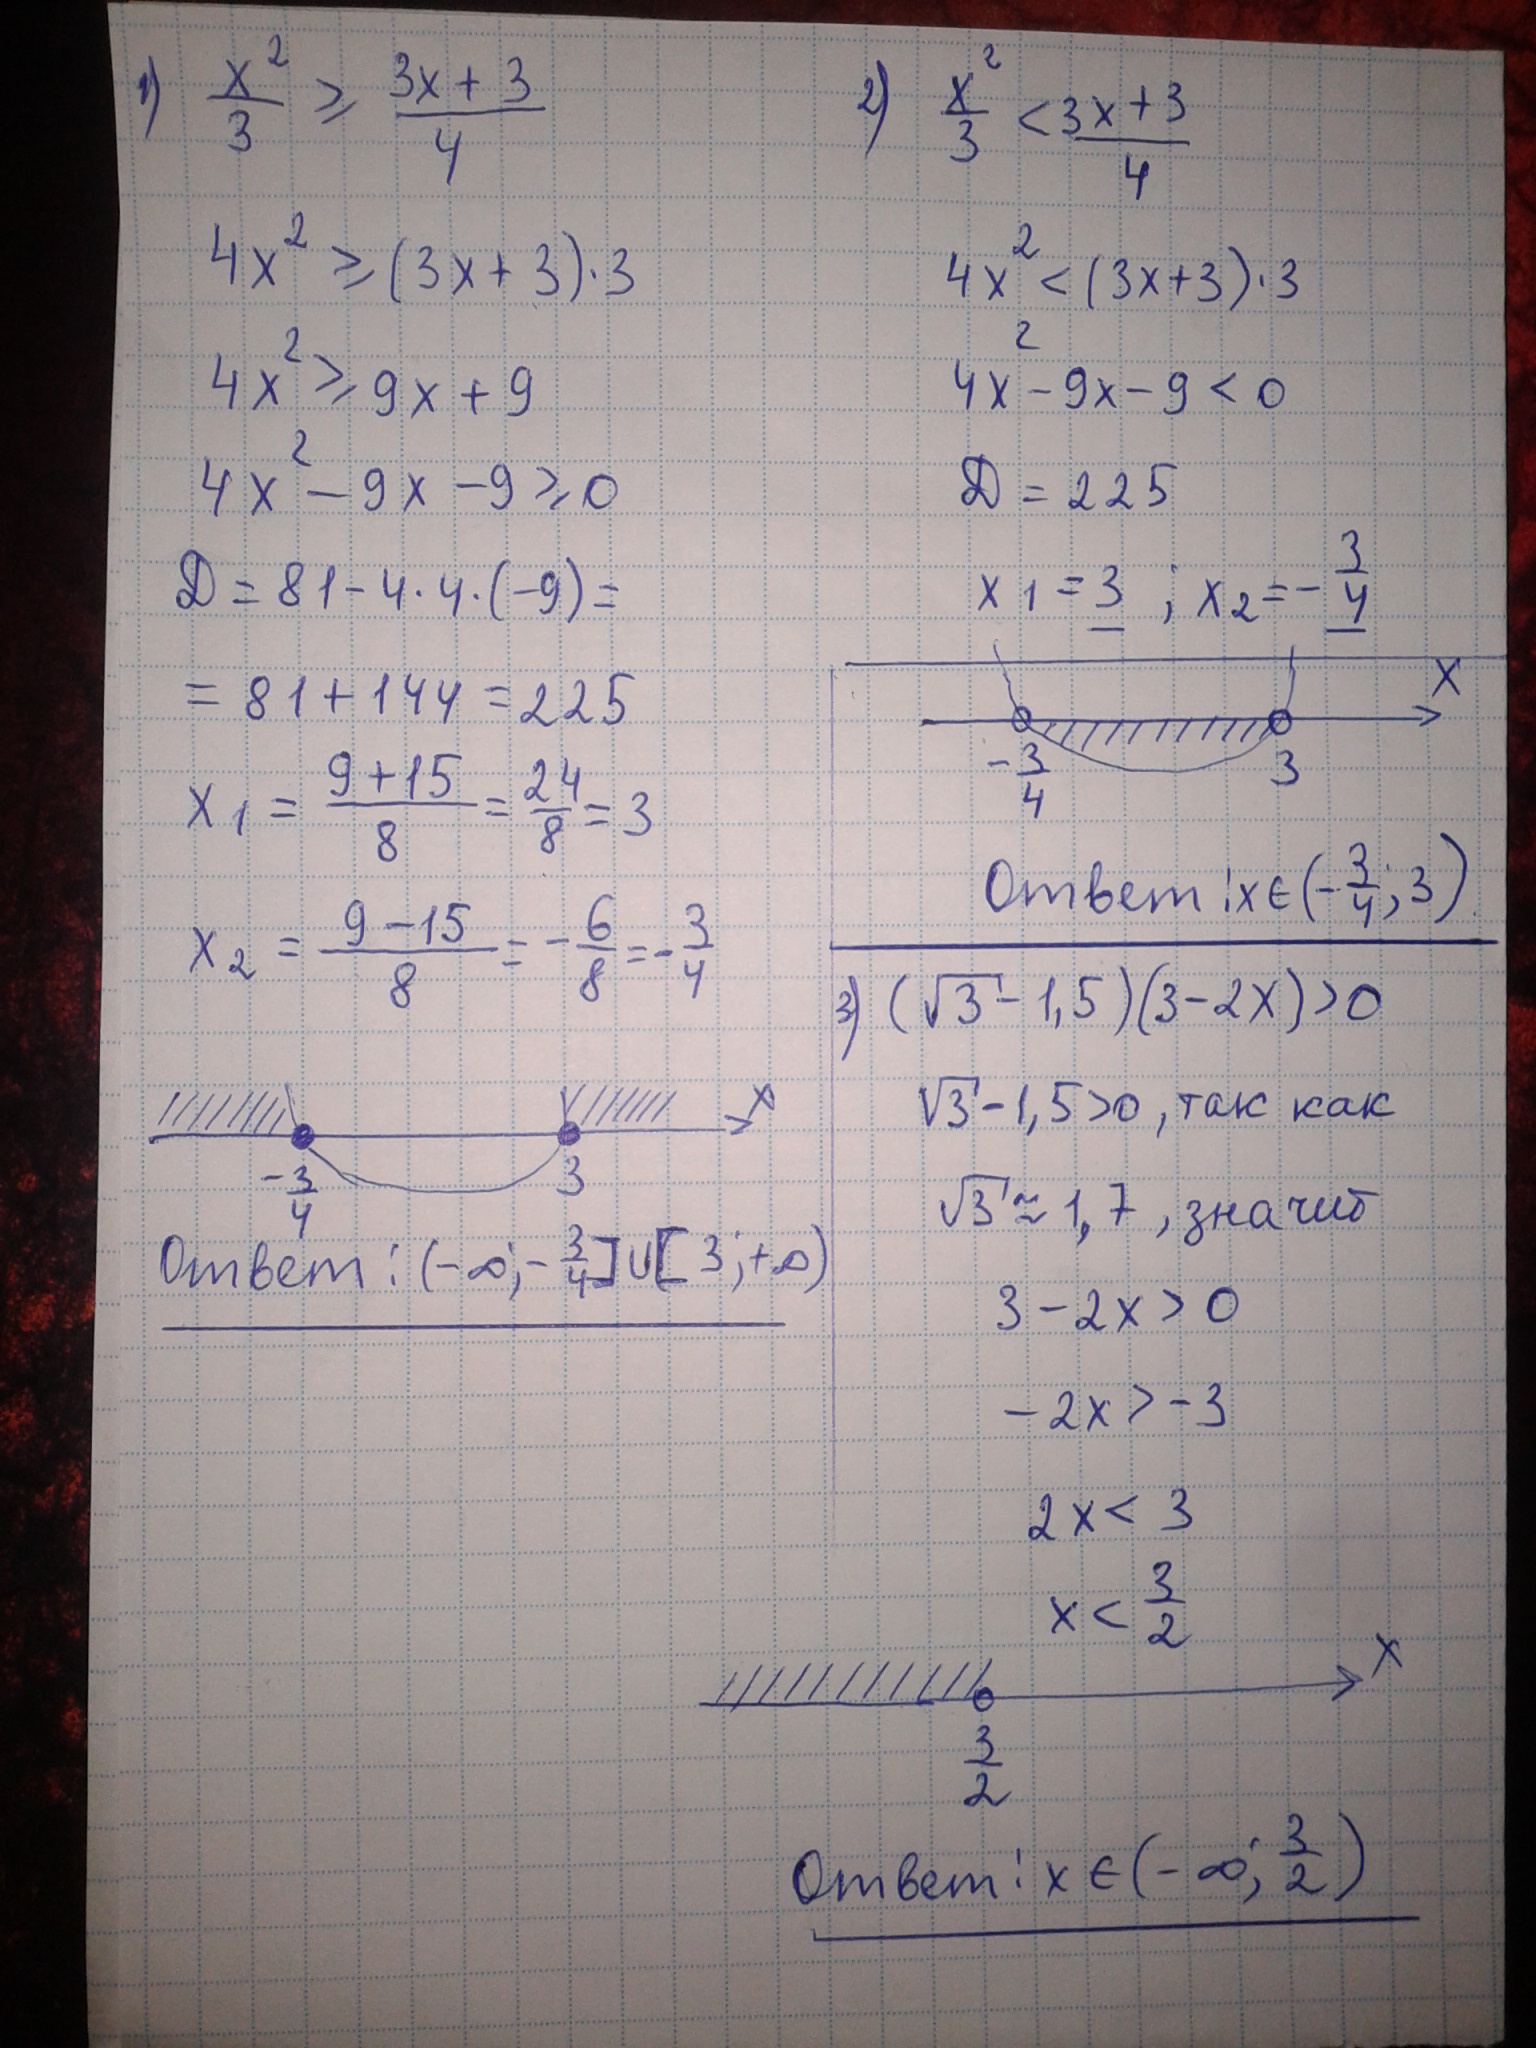 1) x²/3 ⩾ (3x + 3)/4
4x² ⩾ (3x + 3)·3
4x² ⩾ 9x + 9
4x² − 9x − 9 ⩾ 0
Д = 81 − 4·4·(−9) =
= 81 + 144 = 225
x1 = (9 + 15)/8 = 24/8 = 3
x2 = (9 − 15)/8 = −6/8 = −3/4
x
−3/4 3
Ответ: (−∞; −3/4] ∪ [3; +∞)
2) x²/3 < (3x + 3)/4
4x² < (3x + 3)·3
4x² − 9x − 9 < 0
Д = 225
x1 = 3 ; x2 = −3/4
x
−3/4 3
Ответ: x ∈ (−3/4; 3)
3) (√3 − 1,5)(3 − 2x) > 0
√3 − 1,5 > 0, так как
√3 ≈ 1,7, значит
3 − 2x > 0
−2x > −3
2x < 3
x < 3/2
x
3/2
Ответ: x ∈ (−∞; 3/2)